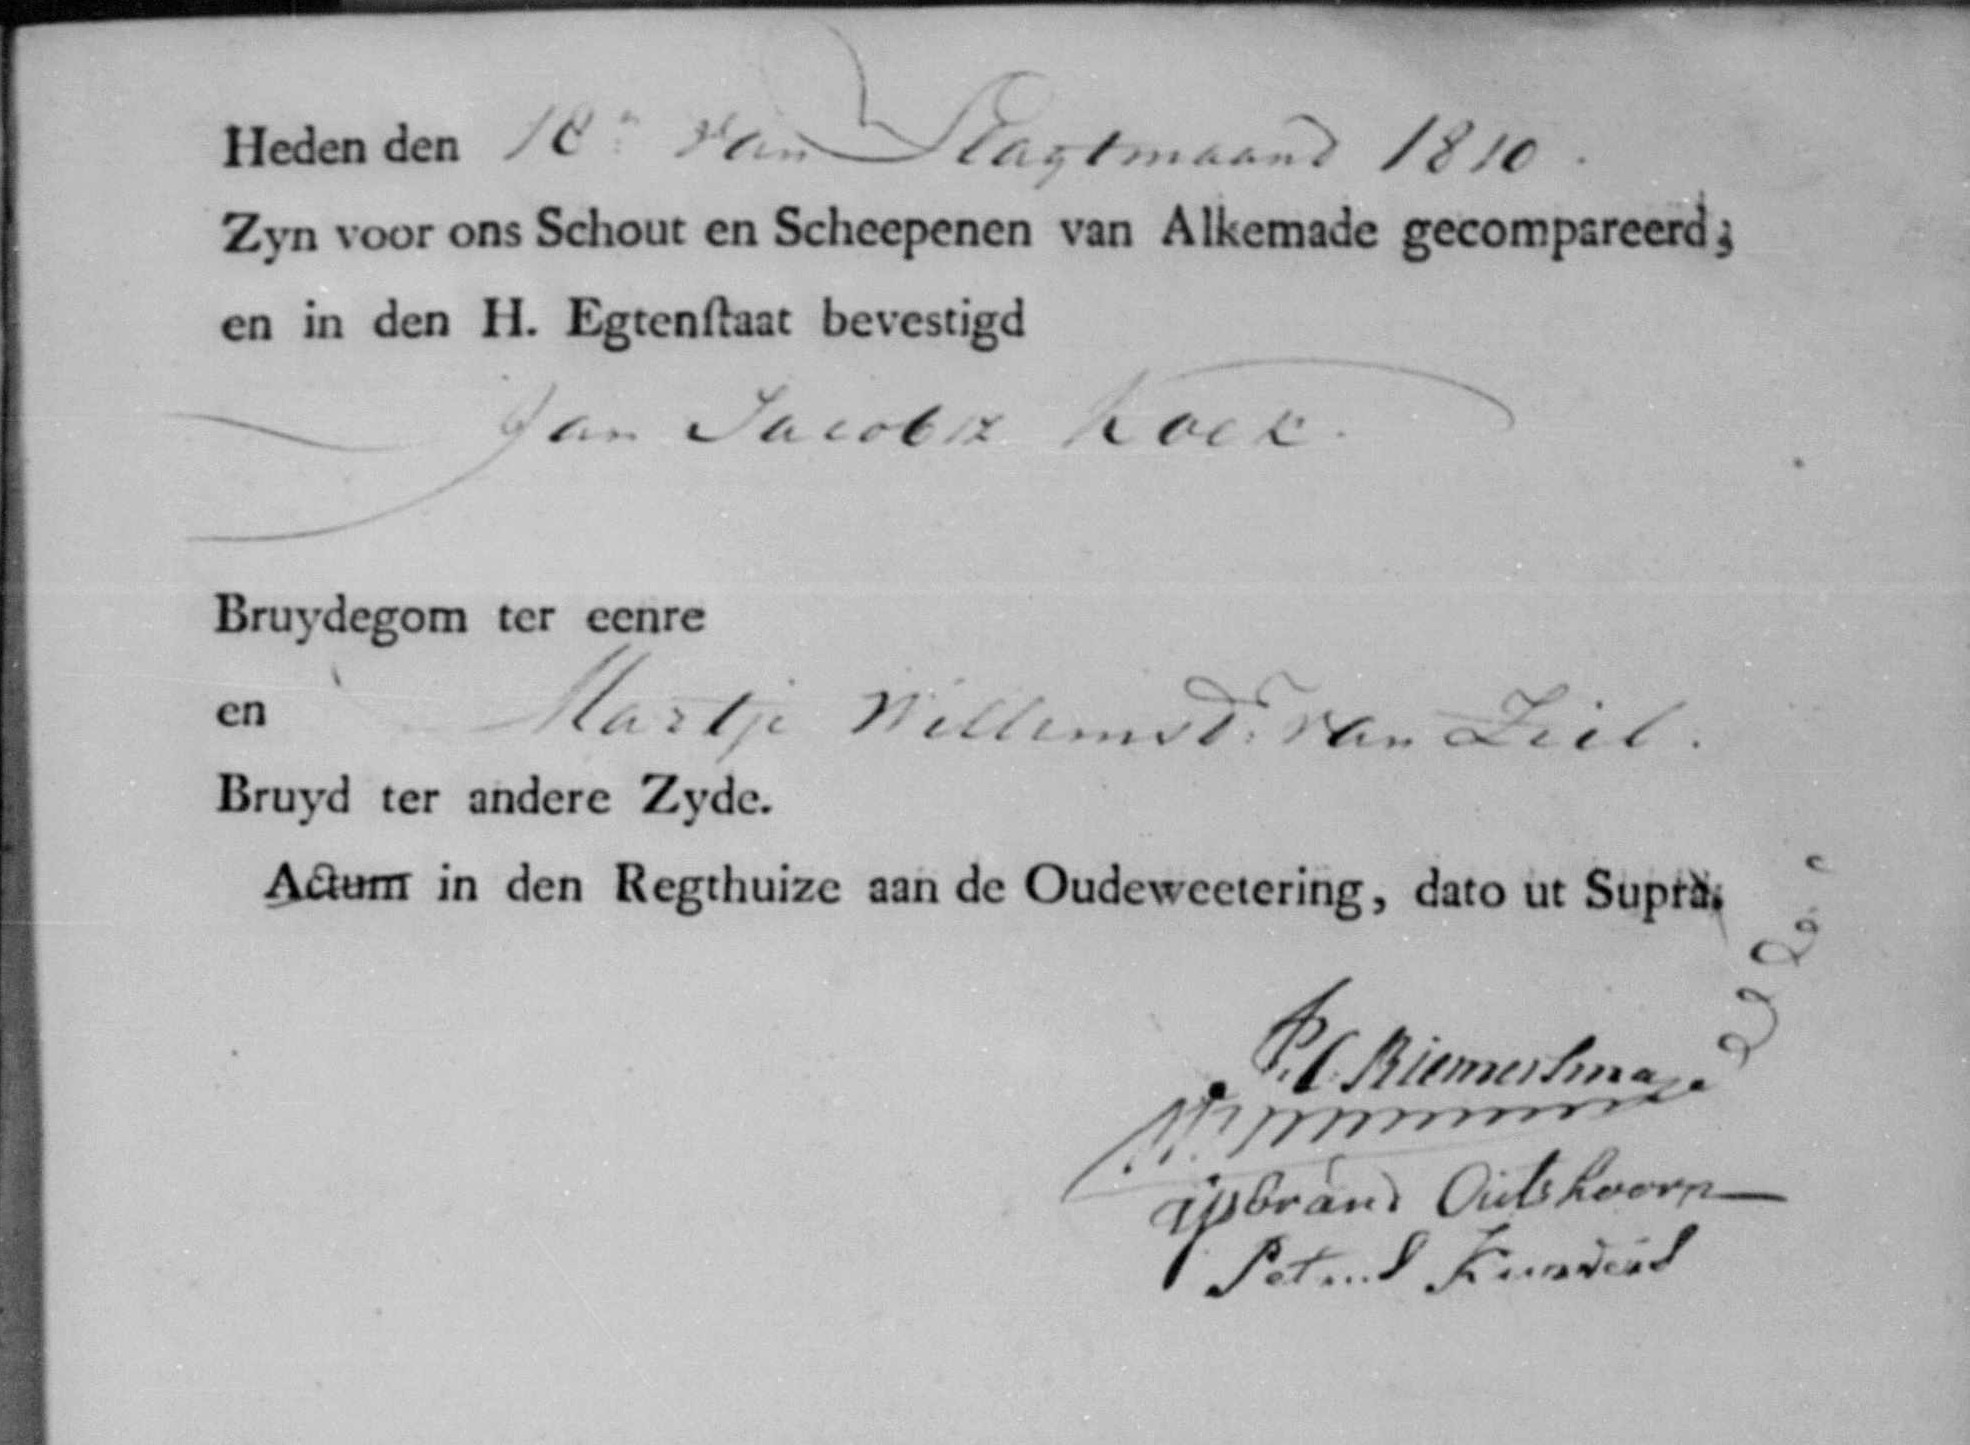 Heden den 18n van Slagtmaand 1810.
Zyn voor ons Schout en Scheepenen van Alkemade gecompareerd;
en in den H. Egtenſtaat bevestigd
Jan Jacobsz Koek.
Bruydegom ter eenre
en Martje Willemsdr. van Ziel.
Bruyd ter andere Zyde.
Actum in den Regthuize aan de Oudeweetering, dato ut Supra.
P. C. Riemersma
ijsbrand Outshoorn
Petrus